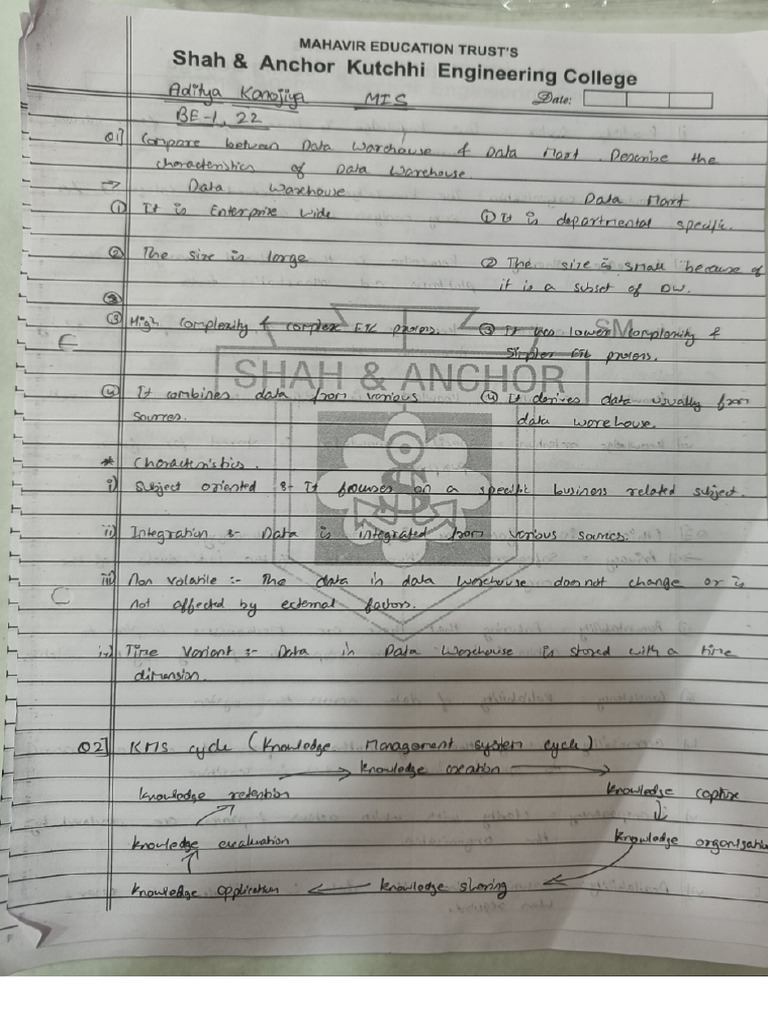 MAHAVIR EDUCATION TRUST'S
Shah & Anchor Kutchhi Engineering College
Aditya Kanojiya MIS Date:
BE-1, 22
Q1] Compare between Data Warehouse & Data Mart. Describe the
characteristics of Data Warehouse
⇒ Data Warehouse Data Mart
① It is Enterprise wide ① It is departmental specific.
② The size is large ② The size is small because of
it is a subset of DW.
③ High Complexity & complex ETL process. ③ It has lower complexity &
simpler ETL process.
SHAH & ANCHOR
④ It combines data from various ④ It derives data usually from
sources. data warehouse.
* Characteristics.
i) Subject oriented :- It focuses on a specific business related subject.
ii) Integration :- Data is integrated from various sources.
iii) Non Volatile :- The data in data warehouse does not change or is
not affected by external factors.
iv) Time Variant :- Data in Data Warehouse is stored with a time
dimension.
Q2] KMS cycle (Knowledge Management system cycle)
knowledge creation
knowledge retention knowledge capture
knowledge evaluation knowledge organisatio
knowledge application knowledge sharing